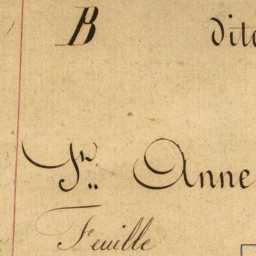 B dite
Sn. Anne
Feuille